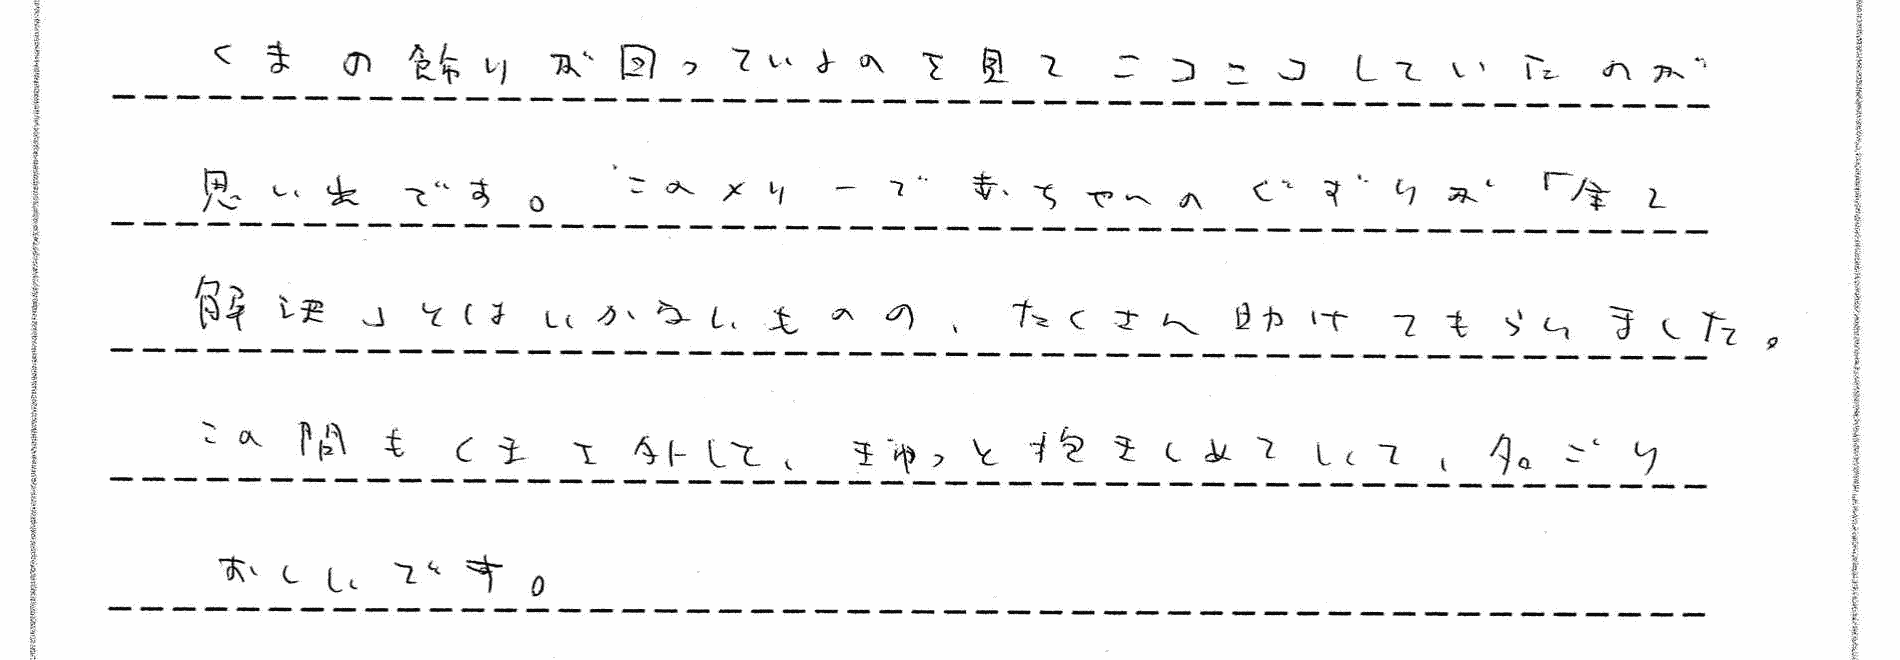 くまの飾りが回っているのを見てニコニコしていたのが
思い出です。このメリーで赤ちゃんのぐずりが「全て
解決」とはいかないものの、たくさん助けてもらいました。
この間もくまを外して、ぎゅっと抱きしめてしてて、名ごり
おしいです。